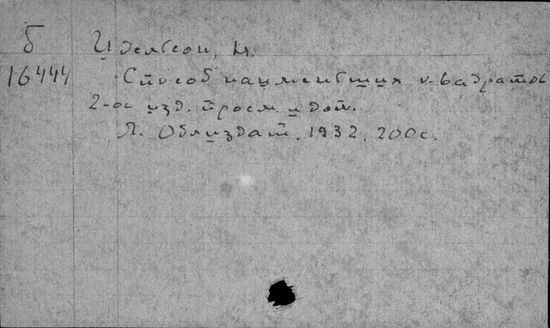 Б
16444
Идельсон, Н.
Способ наименьших квадратов
2-ое изд. просм. и доп.
Л. Облиздат, 1932, 200с.